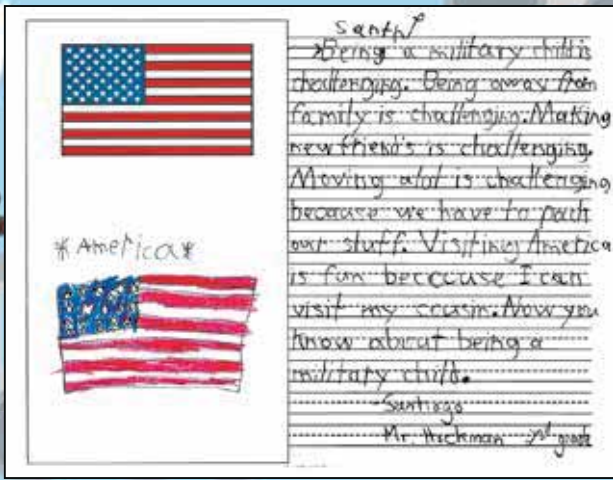 *America*
Being a military child is
challenging. Being away from
family is challenging. Making
new friend's is challenging.
Moving alot is challenging
because we have to pack
our stuff. Visiting America
is fun beccuse I can
visit my cousin. Now you
know about being a
military child.
Santiago
Mr. Hockman 2nd grade